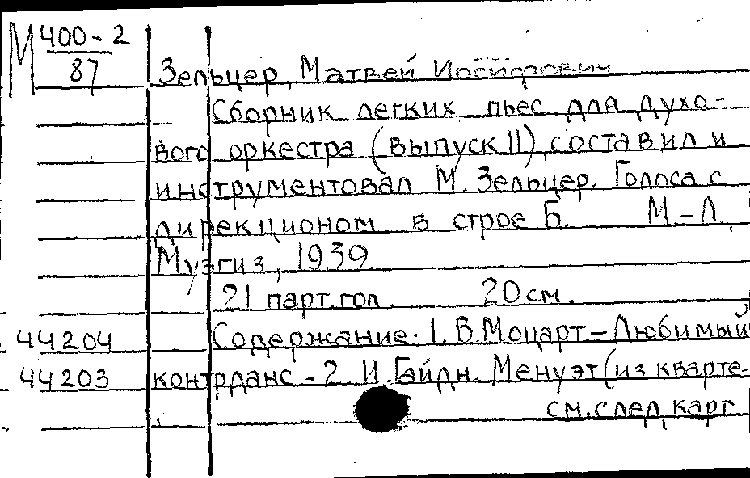 М 400-2
87
Зельцер, Матвей Иосифович
Сборник легких пьес для духо-
вого оркестра (выпуск II) составил и
инструментовал М. Зельцер. Голоса с
дирекционом в строе Б. М-Л,
Музгиз, 1939
21 парт.гол 20см.
44204 Содержание: 1. В.Моцарт-Любимый
44203 контрданс-2. И.Гайдн. Менуэт (из кварте-
см.след.карт